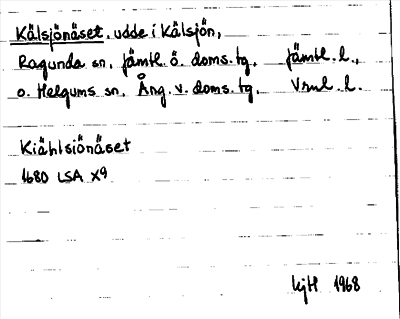 Kälsjönäset, udde i Kälsjön,
Ragunda sn, Jämtl. ö. doms. tg, Jämtl. l.,
o. Helgums sn, Ång. v. doms. tg, Vrnl. l.
Kiählsiönäset
1680 LSA X9
kjH 1968